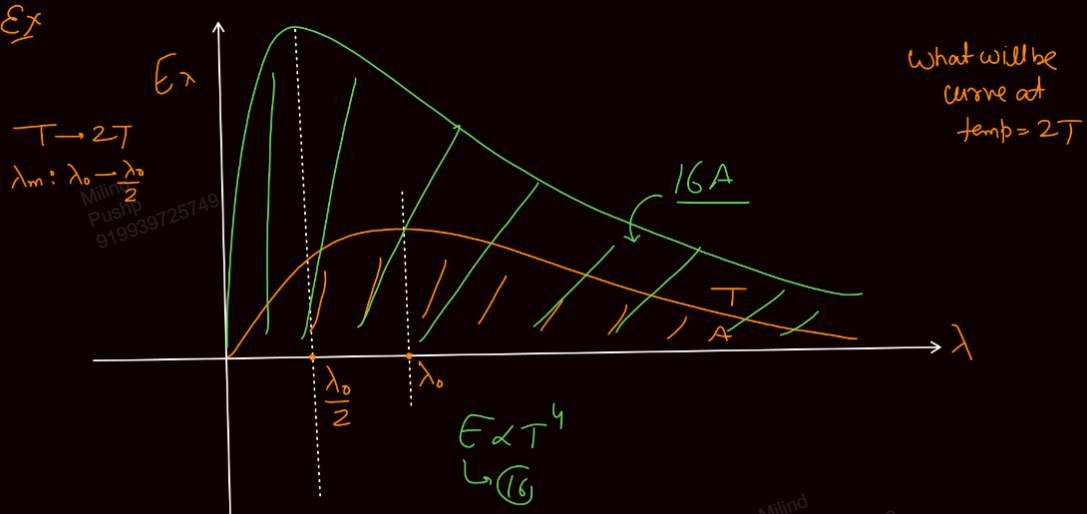 Ex
Eλ
What will be
curve at
temp = 2T
T → 2T
λm : λ0 → λ0/2
Milind
Pushp
919939725749
16A
T
A
λ
λ0/2
λ0
E ∝ T⁴
↳ 16
Milind